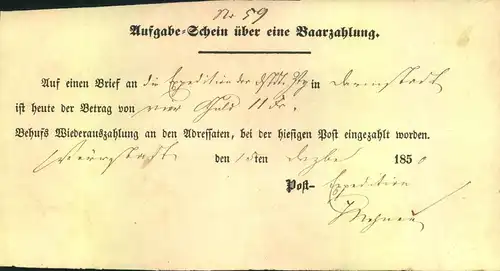 No 59
Aufgabe-Schein über eine Baarzahlung.
Auf einen Brief an die Expedition der in Darmstadt
ist heute der Betrag von vier Guld 11 Xr.
Behufs Wiederauszahlung an den Adressaten, bei der hiesigen Post eingezahlt worden.
Wörrstadt den 15ten Dezbr 1850
Post- Expedition